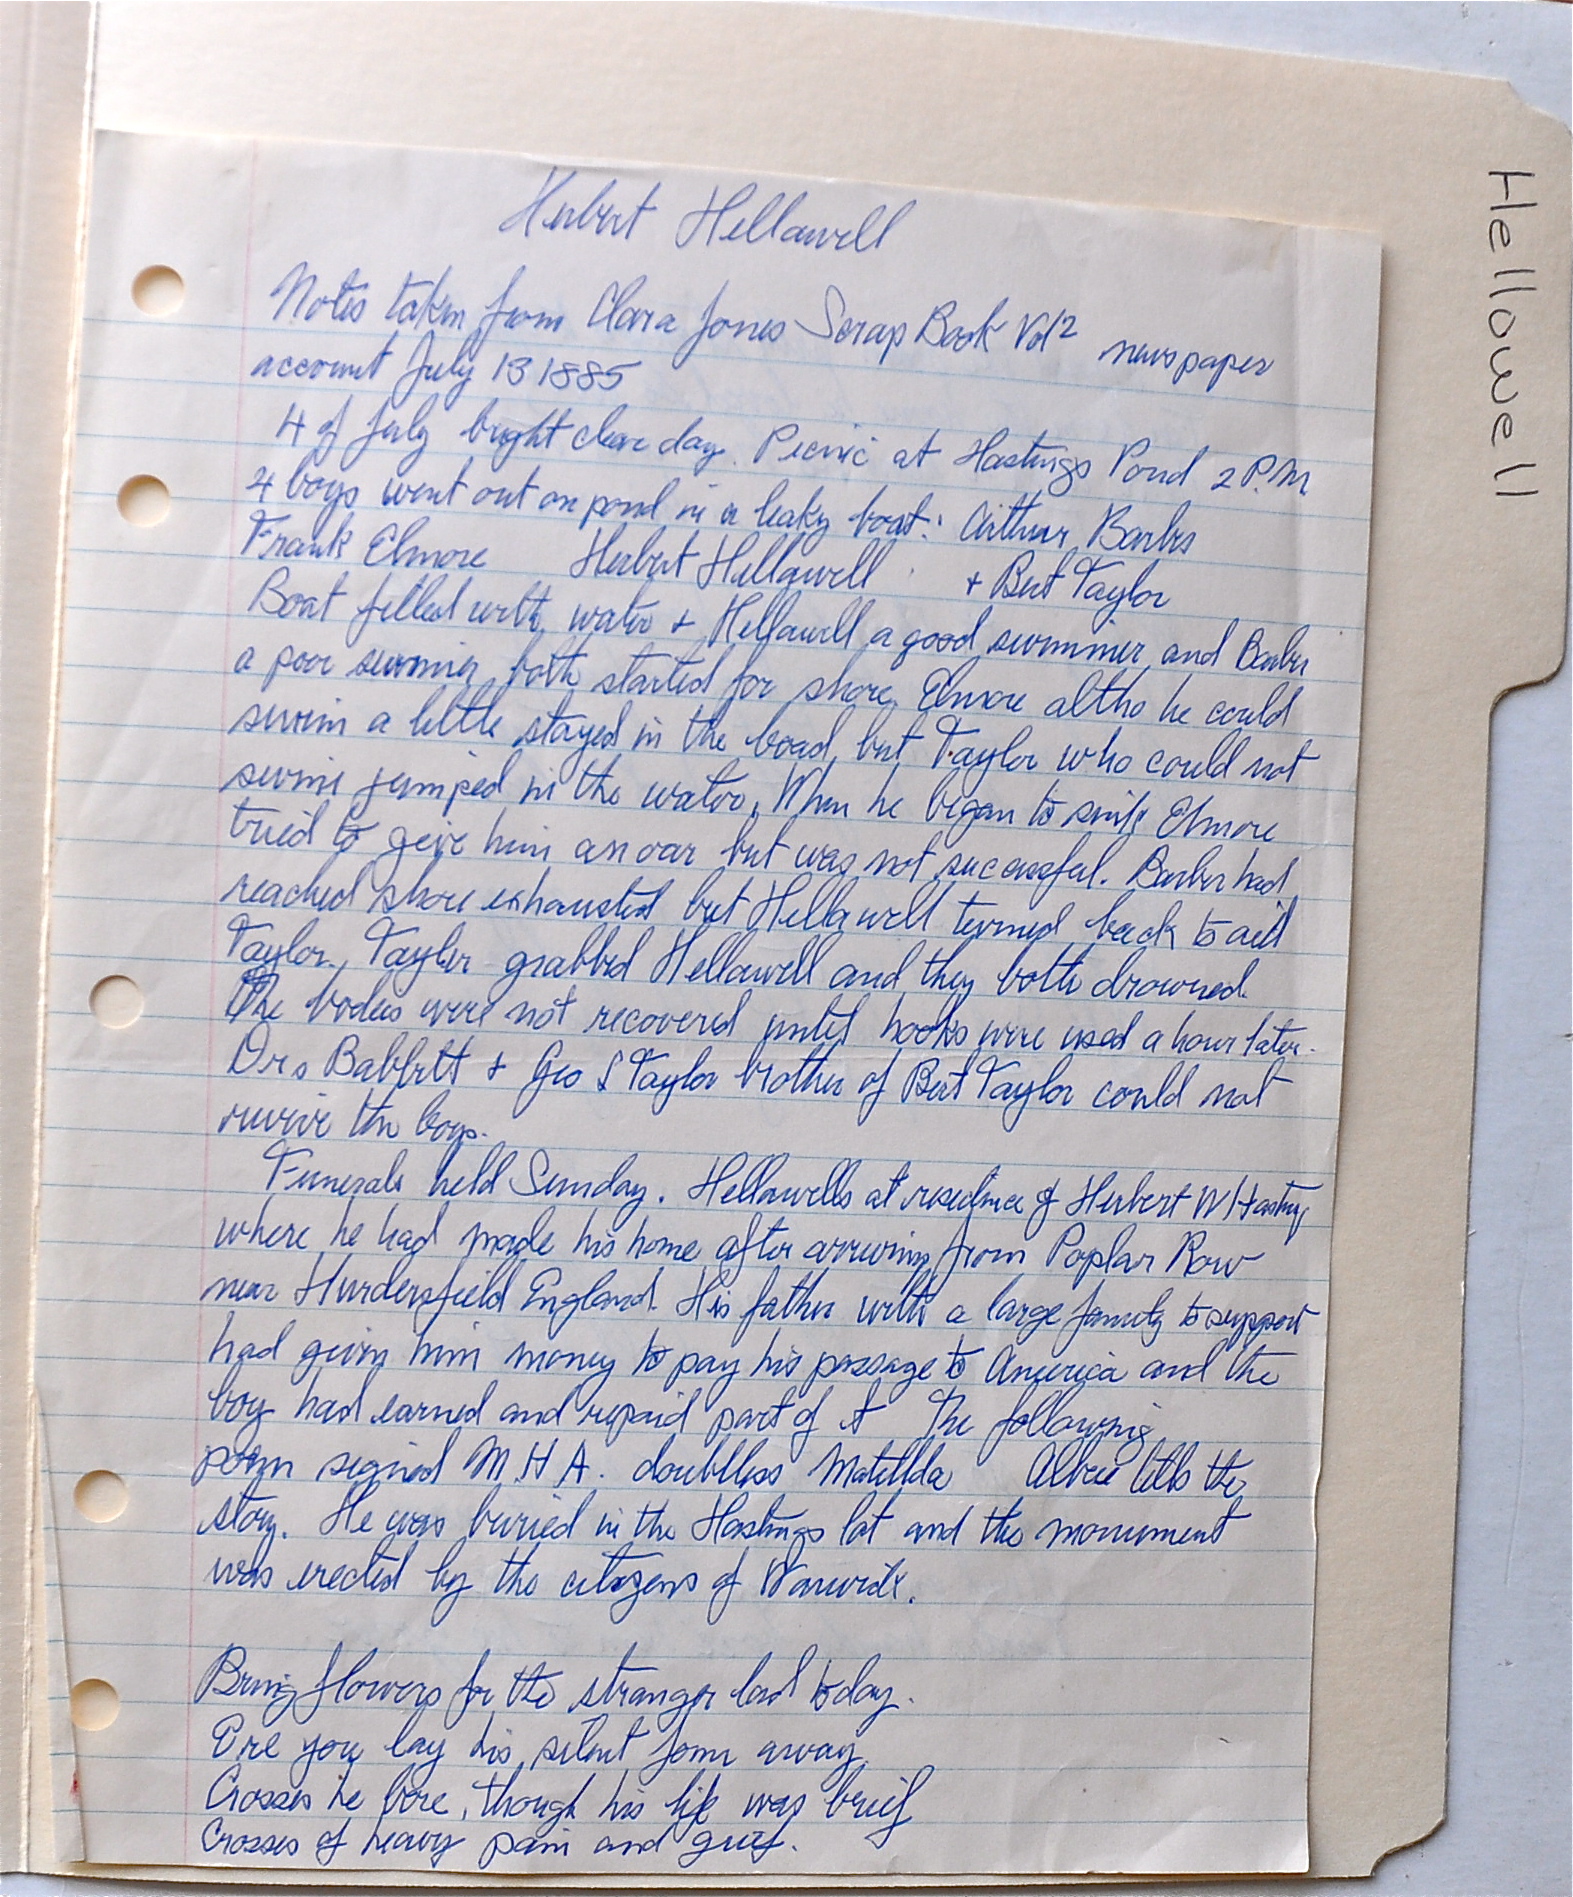 Herbert Hellawell
Notes taken from Clara Jones Scrap Book Vol 2 newspaper
account July 13 1885
4 of July bright clear day. Picnic at Hastings Pond 2 P.M
4 boys went out on pond in a leaky boat: Arthur Barber
Frank Elmore Herbert Hellawell + Bert Taylor
Boat filled with water + Hellawell a good swimmer and Barber
a poor swimmer both started for shore. Elmore altho he could
swim a little stayed in the boad but Taylor who could not
swim jumped in the water. When he began to sink Elmore
tried to give him an oar but was not successful. Barber had
reached shore exhausted but Hellawell turned back to aid
Taylor. Taylor grabbed Hellawell and they both drowned.
The bodies were not recovered until hooks were used a hour later.
Drs Babbitt + Geo S Taylor brother of Bert Taylor could not
revive the boys.
Funerals held Sunday. Hellawells at residence of Herbert W Hastings
where he had made his home after arriving from Poplar Row
near Hurdersfield England. His father with a large family to support
had given him money to pay his passage to America and the
boy had earned and repaid part of it The following
poem signed M.H A. doubtless Matillda Albee tells the
story. He was buried in the Hastings lot and the monument
was erected by the citizens of Warwick.
Bring flowers for the stranger lad today.
Ere you lay his silent form away
Crosses he bore, though his life was brief
Crosses of heavy pain and grief.
Hellowell